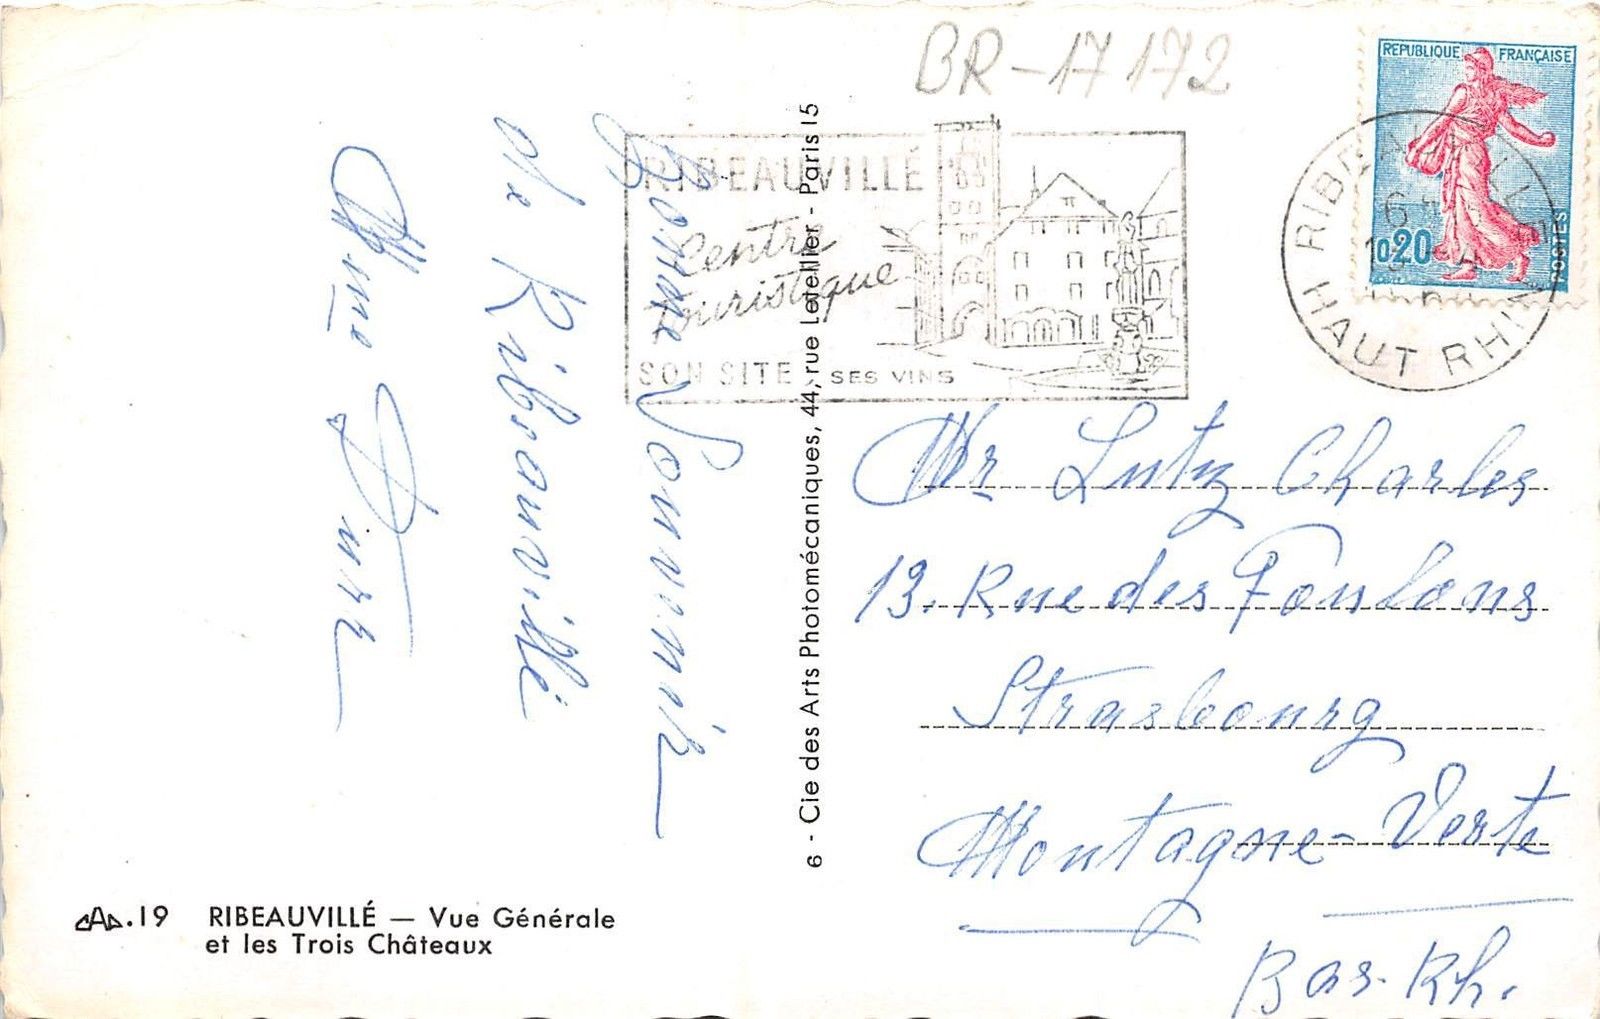 BR-17172
REPUBLIQUE FRANÇAISE
0,20
POSTES
RIBEAUVILLE
HAUT RHIN
RIBEAUVILLÉ
Centre
touristique
SON SITE SES VINS
Bonne Souvenir
de Ribeauvillé
Mme Durr
6 - Cie des Arts Photomécaniques, 44, rue Letellier - Paris 15
Mr Lutz Charles
13. Rue des
Strasbourg
Montagne-Verte
Bas-Rh.
.19 RIBEAUVILLÉ — Vue Générale
et les Trois Châteaux